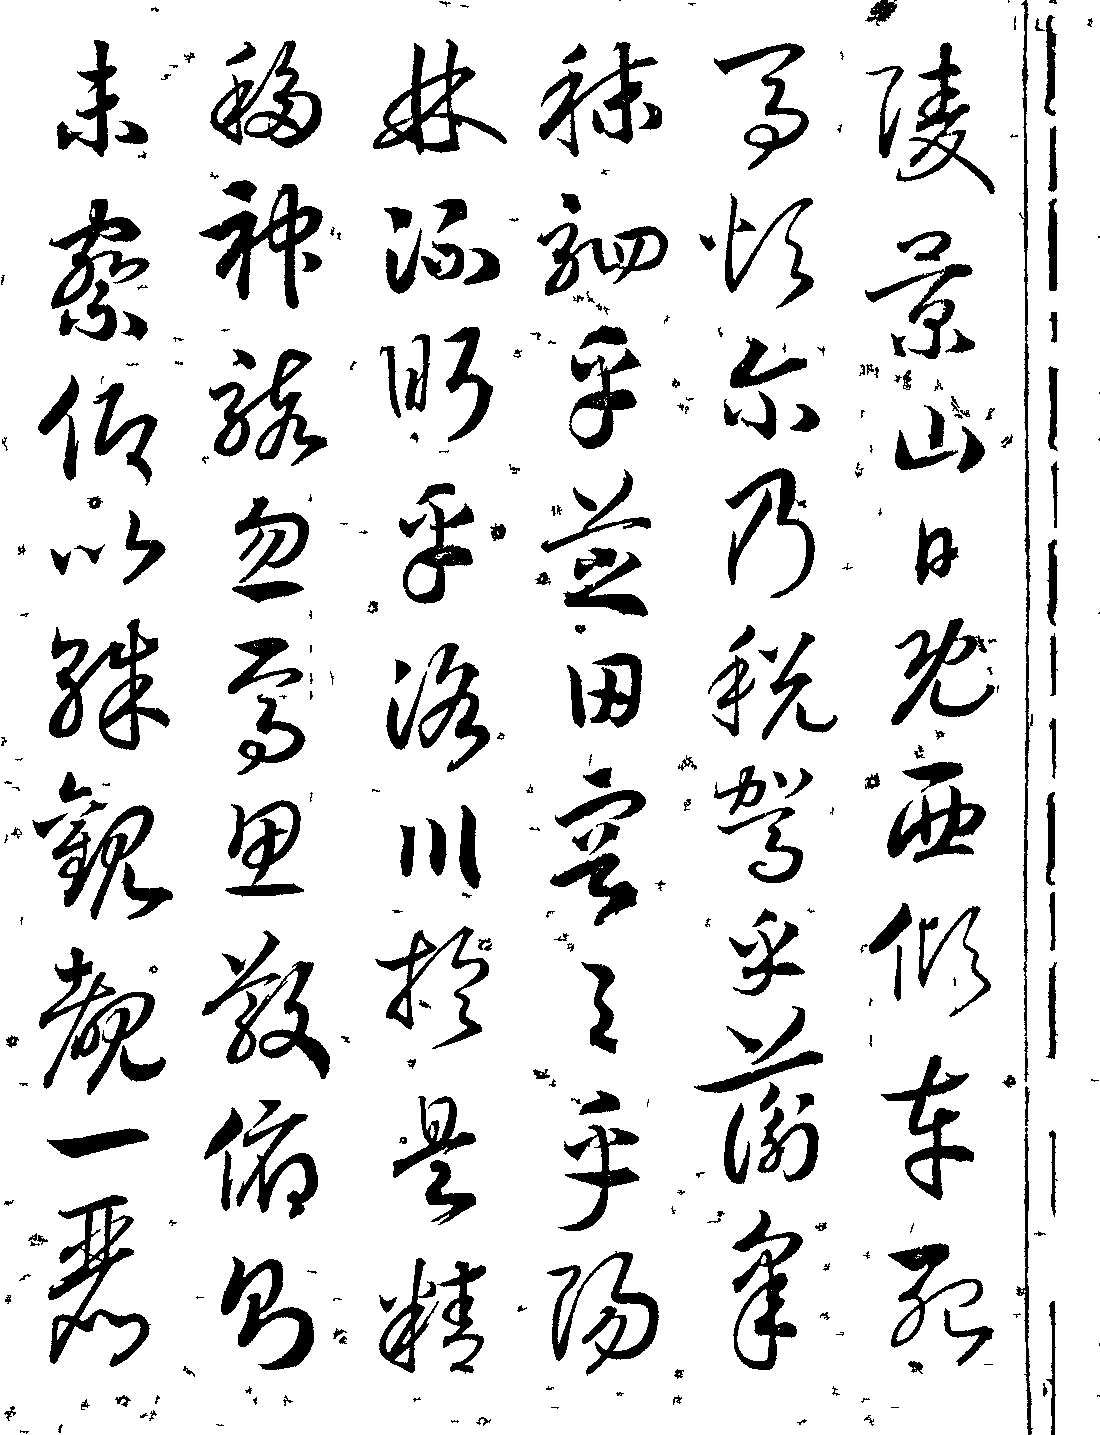 陵景山日既西傾車殆
馬煩尓乃稅駕乎蘅皋
秣駟乎芝田容與乎陽
林流眄乎洛川於是精
移神駭忽焉思散俯則
未察仰以殊觀覩一麗